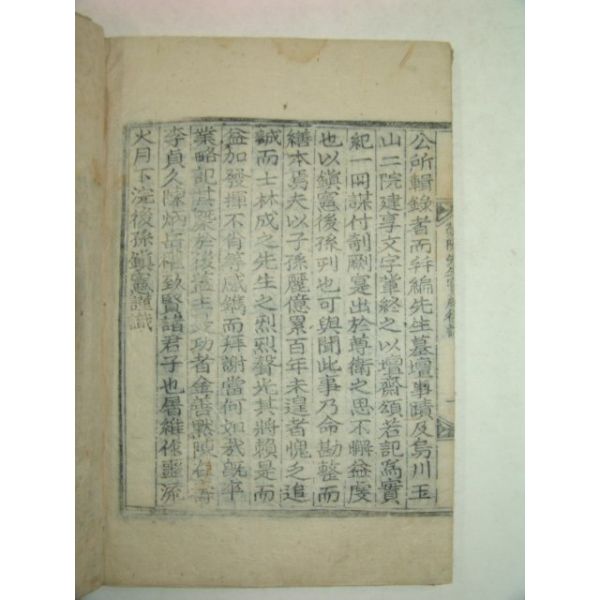 公所輯錄者而幷編先生墓壇事蹟及烏川玉
山二院建享文字輩經之以壇齋頌若記爲實
紀一冊謀付剞劂寔出於尊衛之思不懈益虔
也以鎭憲後孫列也可與聞此事乃命勘整而
繕本焉夫以子孫麗億累百年未遑者愧之追
誠而士林成之先生之烈烈聲光其將賴是而
益加發揮不肖等感鐫而拜謝當何如哉旣卒
業略記其槩於後益士功者金善默陳
李貞久陳炳致賢諸君子也屠維作噩流
火月下浣後孫鎭憲謹識